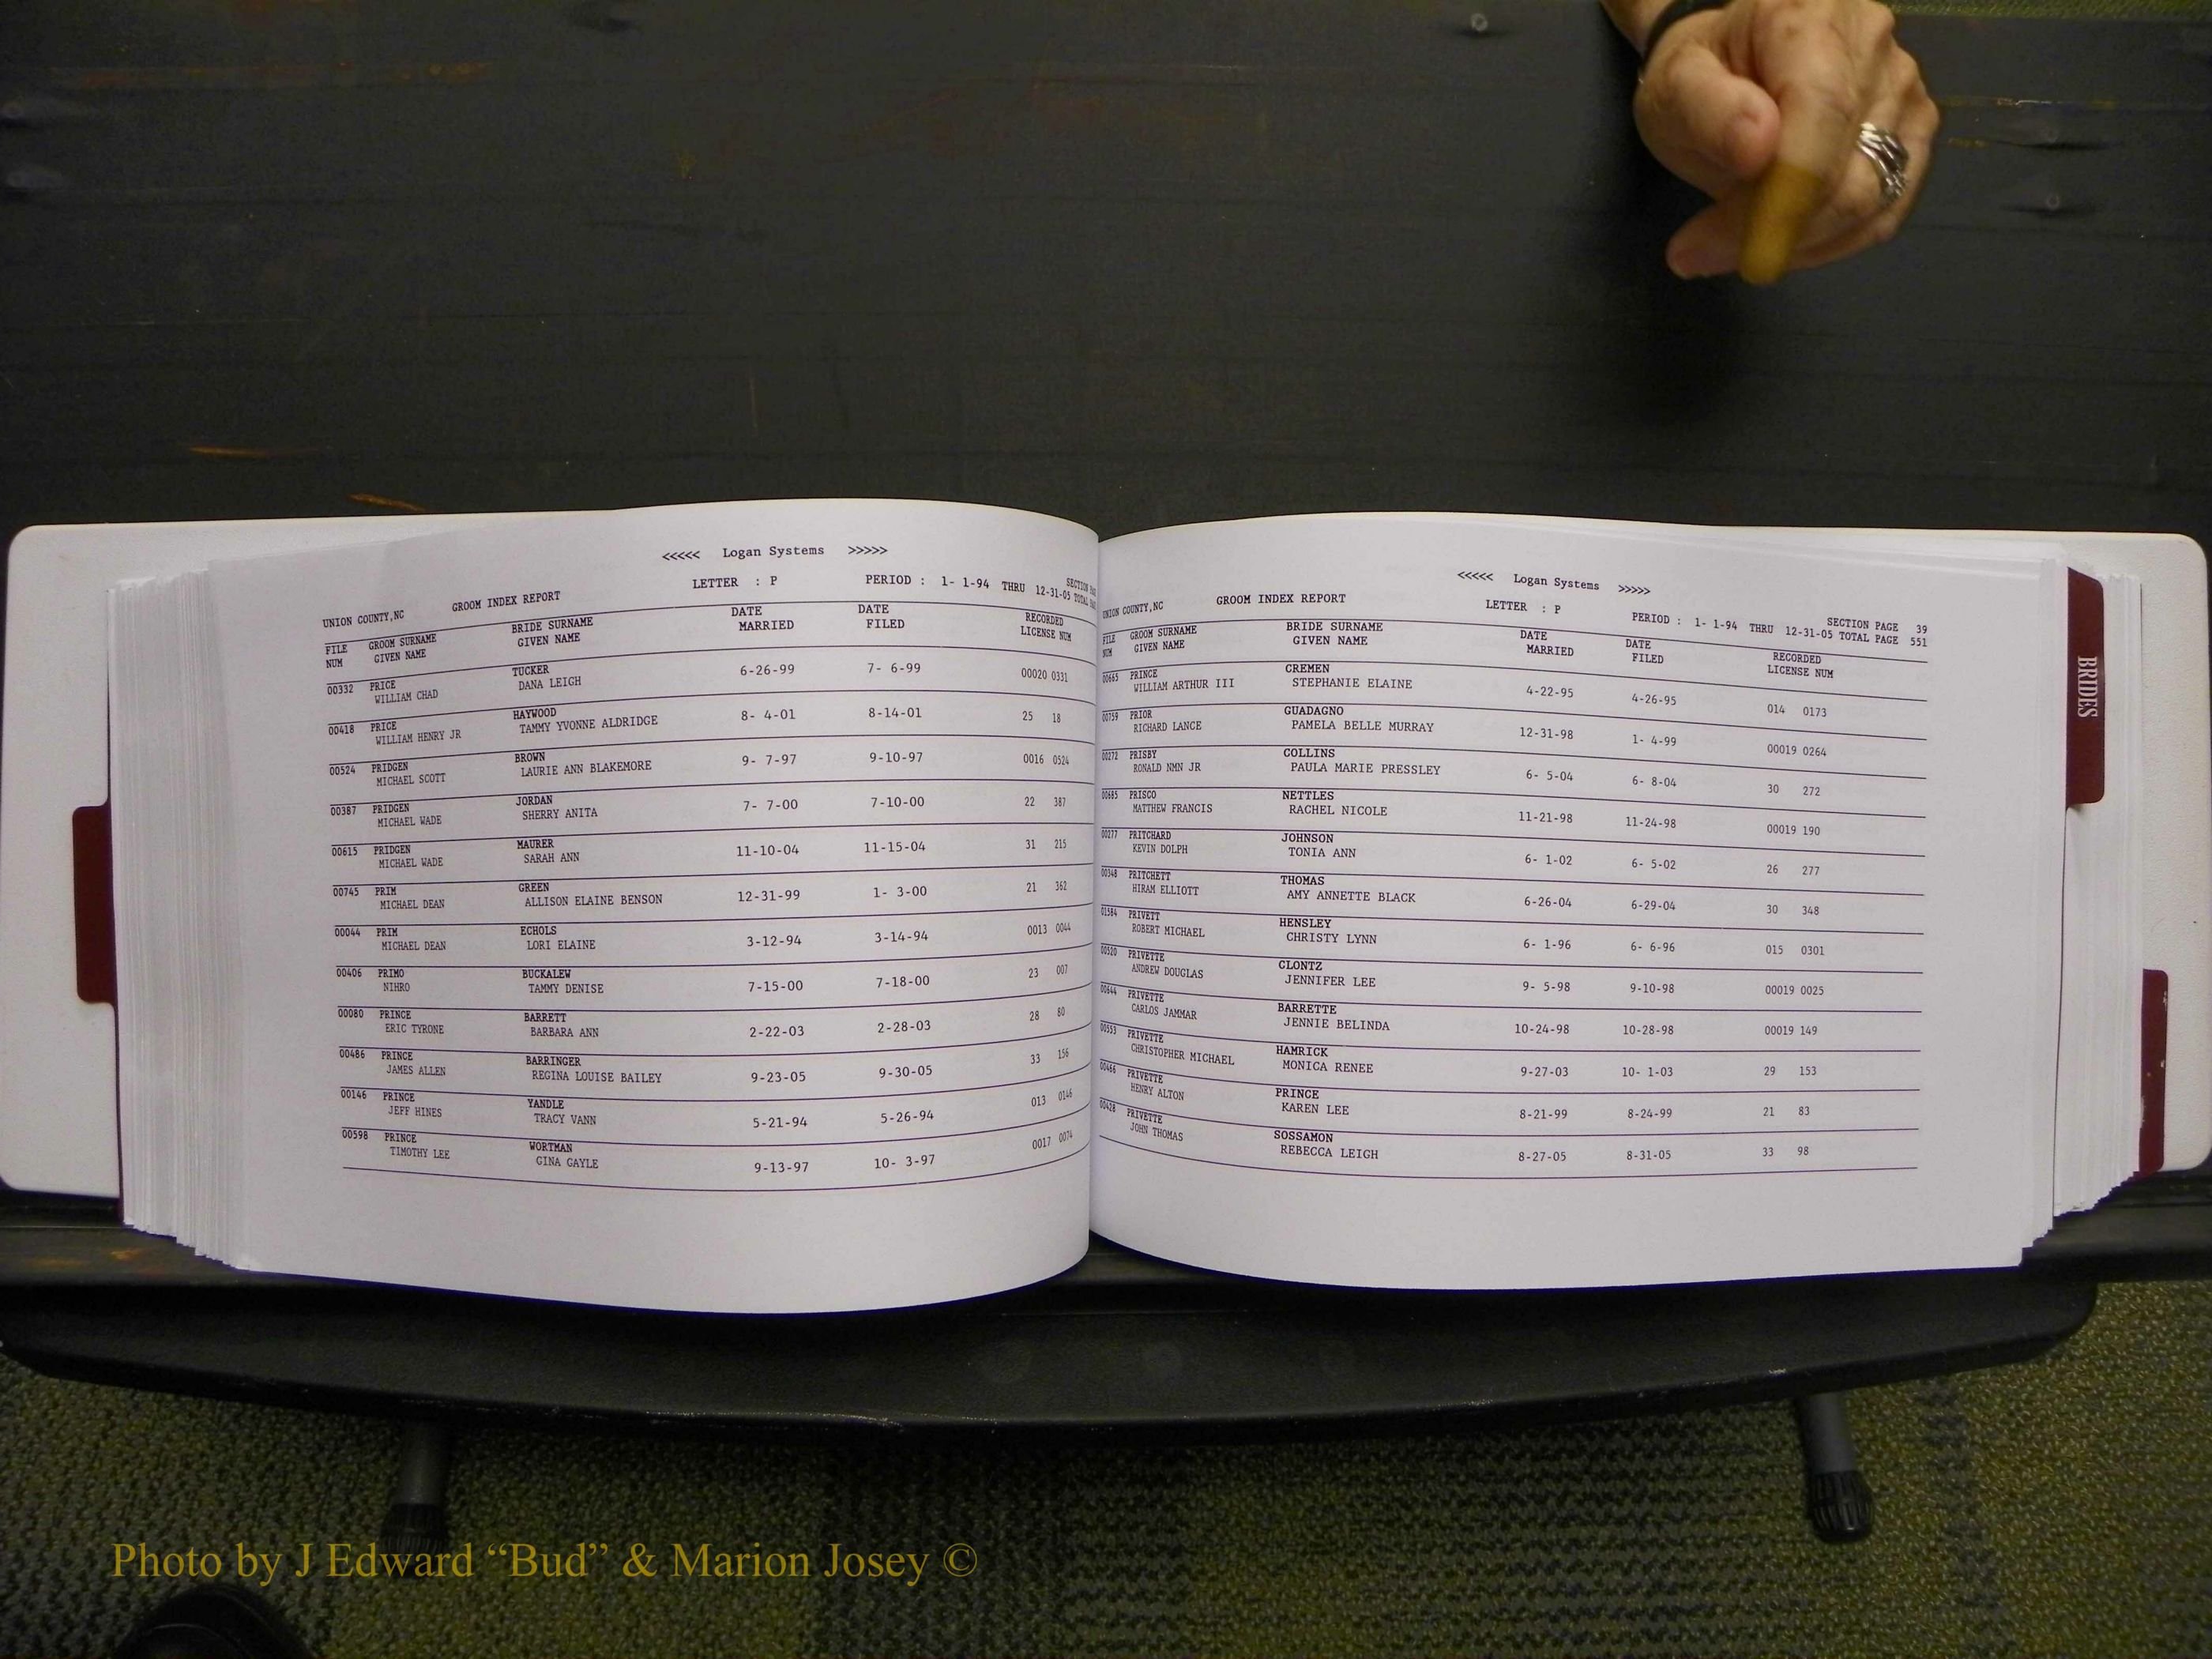 <<<<< Logan Systems >>>>>
UNION COUNTY,NC GROOM INDEX REPORT LETTER : P PERIOD : 1- 1-94 THRU 12-31-05
FILE GROOM SURNAME BRIDE SURNAME DATE DATE RECORDED
NUM GIVEN NAME GIVEN NAME MARRIED FILED LICENSE NUM
00332 PRICE TUCKER 6-26-99 7- 6-99 00020 0331
WILLIAM CHAD DANA LEIGH
00418 PRICE HAYWOOD 8- 4-01 8-14-01 25 18
WILLIAM HENRY JR TAMMY YVONNE ALDRIDGE
00524 PRIDGEN BROWN 9- 7-97 9-10-97 0016 0524
MICHAEL SCOTT LAURIE ANN BLAKEMORE
00387 PRIDGEN JORDAN 7- 7-00 7-10-00 22 387
MICHAEL WADE SHERRY ANITA
00615 PRIDGEN MAURER 11-10-04 11-15-04 31 215
MICHAEL WADE SARAH ANN
00745 PRIM GREEN 12-31-99 1- 3-00 21 362
MICHAEL DEAN ALLISON ELAINE BENSON
00044 PRIM ECHOLS 3-12-94 3-14-94 0013 0044
MICHAEL DEAN LORI ELAINE
00406 PRIMO BUCKALEW 7-15-00 7-18-00 23 007
NIHRO TAMMY DENISE
00080 PRINCE BARRETT 2-22-03 2-28-03 28 80
ERIC TYRONE BARBARA ANN
00486 PRINCE BARRINGER 9-23-05 9-30-05 33 156
JAMES ALLEN REGINA LOUISE BAILEY
00146 PRINCE YANDLE 5-21-94 5-26-94 013 0146
JEFF HINES TRACY VANN
00598 PRINCE WORTMAN 9-13-97 10- 3-97 0017 0074
TIMOTHY LEE GINA GAYLE
<<<<< Logan Systems >>>>>
UNION COUNTY,NC GROOM INDEX REPORT LETTER : P PERIOD : 1- 1-94 THRU 12-31-05 SECTION PAGE 39
TOTAL PAGE 551
FILE GROOM SURNAME BRIDE SURNAME DATE DATE RECORDED
NUM GIVEN NAME GIVEN NAME MARRIED FILED LICENSE NUM
00665 PRINCE CREMEN 4-22-95 4-26-95 014 0173
WILLIAM ARTHUR III STEPHANIE ELAINE
00759 PRIOR GUADAGNO 12-31-98 1- 4-99 00019 0264
RICHARD LANCE PAMELA BELLE MURRAY
00272 PRISBY COLLINS 6- 5-04 6- 8-04 30 272
RONALD NMN JR PAULA MARIE PRESSLEY
00685 PRISCO NETTLES 11-21-98 11-24-98 00019 190
MATTHEW FRANCIS RACHEL NICOLE
00277 PRITCHARD JOHNSON 6- 1-02 6- 5-02 26 277
KEVIN DOLPH TONIA ANN
00348 PRITCHETT THOMAS 6-26-04 6-29-04 30 348
HIRAM ELLIOTT AMY ANNETTE BLACK
01584 PRIVETT HENSLEY 6- 1-96 6- 6-96 015 0301
ROBERT MICHAEL CHRISTY LYNN
00520 PRIVETTE CLONTZ 9- 5-98 9-10-98 00019 0025
ANDREW DOUGLAS JENNIFER LEE
00644 PRIVETTE BARRETTE 10-24-98 10-28-98 00019 149
CARLOS JAMMAR JENNIE BELINDA
00553 PRIVETTE HAMRICK 9-27-03 10- 1-03 29 153
CHRISTOPHER MICHAEL MONICA RENEE
00466 PRIVETTE PRINCE 8-21-99 8-24-99 21 83
HENRY ALTON KAREN LEE
00428 PRIVETTE SOSSAMON 8-27-05 8-31-05 33 98
JOHN THOMAS REBECCA LEIGH
BRIDES
Photo by J Edward “Bud” & Marion Josey ©